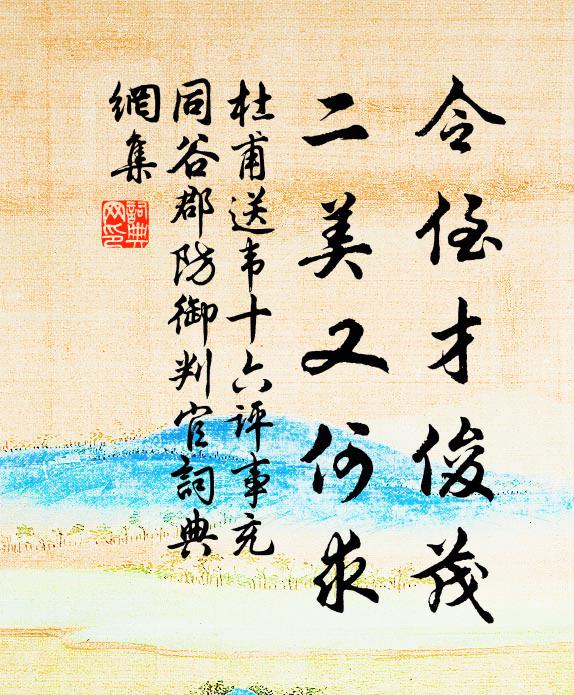 令侄才俊茂
二美又何求
杜甫送韦十六评事充
同谷郡防御判官詞典
網集
詞典
网印